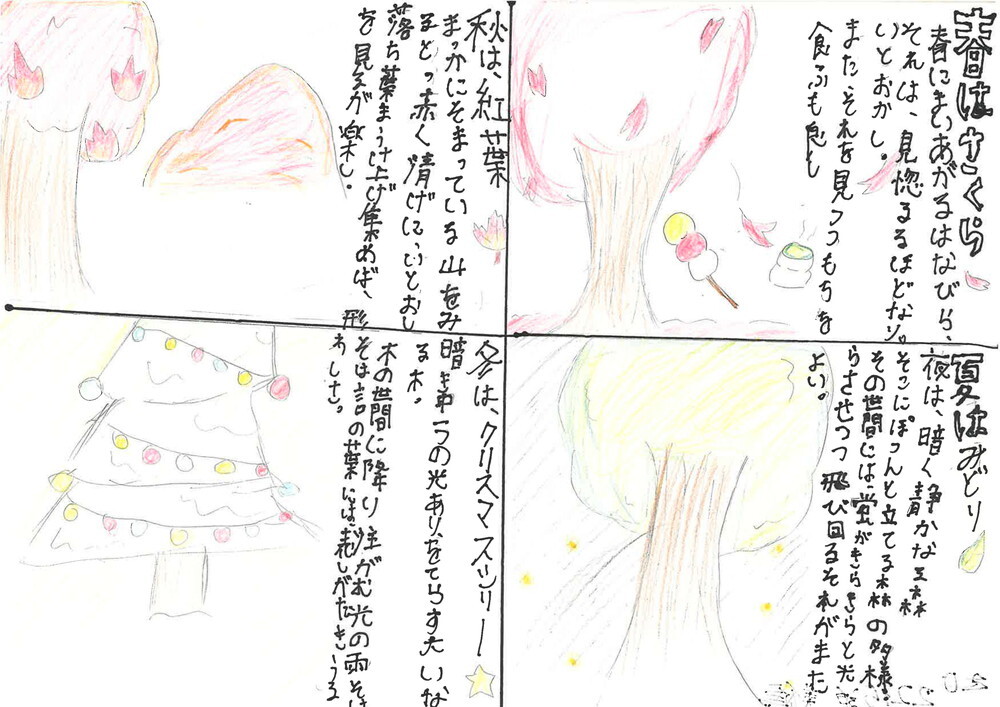 春はさくら
春にまいあがるはなびら、
それは、見惚るるほどなり。
いとおかし。
また、それを見つつもちを
食ふも良し
夏はみどり
夜は、暗く静かな森
そこにぽつんと立てる森の多様
その世間には蛍がきらきらと光
らさせつつ飛び回るそれがまた
よい。
秋は、紅葉
まっかにそまっている山をみ
るとっ赤く情げにいとおし
落ち葉まう上げ集めば、形
を見るが楽し。
冬は、クリスマスツリー
暗 第一つの光ありをてらす大いな
る木。
木の世間に降り注がむ光の雨そ
そは言の葉には表しがたきうる
わしさ。